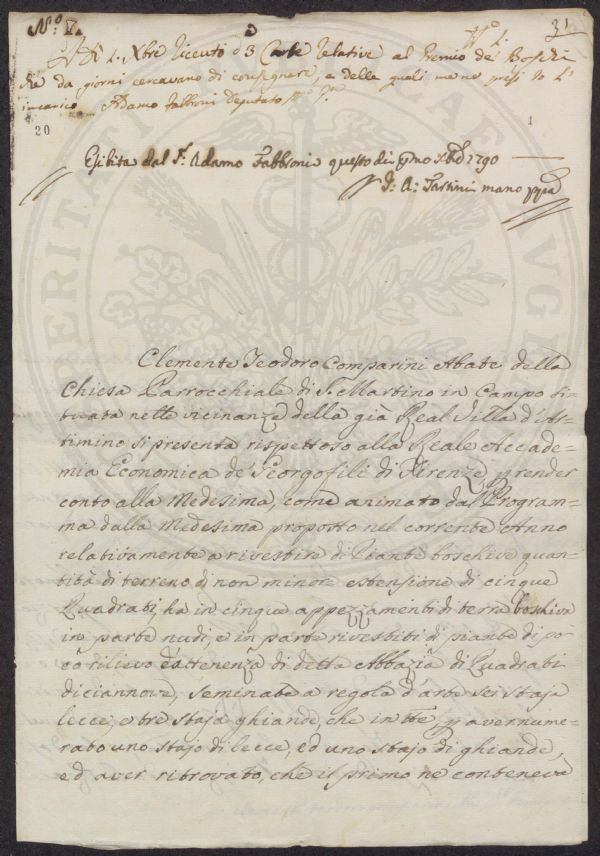 N.º 7.
Nº 1.
31
A dì 1. Xbre ricevuto 3 Carte relative al Premio de' Boschi
che da giorni cercavano di consegnare, e delle quali me ne presi Io l'
incarico Adamo Fabbroni Deputato
20
1
Esibita dal S.r Adamo Fabbroni questo dì pmo Xbre 1790
G: A: Tartini mano ppa
PERITATI
Clemente Teodoro Comparini Abate della
Chiesa Parrocchiale di S. Martino in Campo si-
tuata nelle vicinanze della già Real Villa d'Ar-
timino si presenta rispettoso alla Reale Accade-
mia Economica de' Georgofili di Firenze, p render
conto alla Medesima, come animato dal Program-
ma dalla Medesima proposto nel corrente Anno
relativamente a rivestire di Piante boschive quan-
tità di terreno di non minore estensione di cinque
Quadrati, ha in cinque appezzamenti di terra boschiva
in parte nudi, e in parte rivestiti di piante di po-
co rilievo di detta Abbazia di Quadrati
diciannove, seminate a regola d'arte sei staja
lecce, e tre staja ghiande, che in tte p aver nume-
rato uno stajo di lecce, ed uno stajo di ghiande,
ed aver ritrovato, che il primo ne conteneva